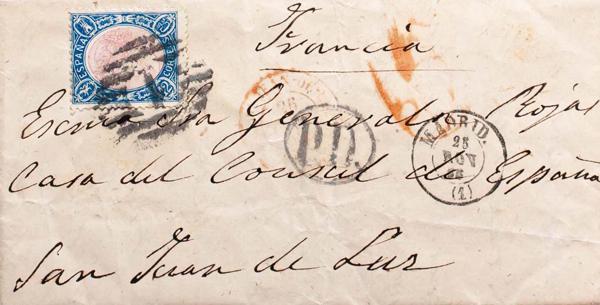 ESPAÑA
CORREOS
12
Francia
Escma Sra Generala Rojas
P.D.
MADRID.
25
NOV
(1)
Casa del Consul de España
San Juan de Luz